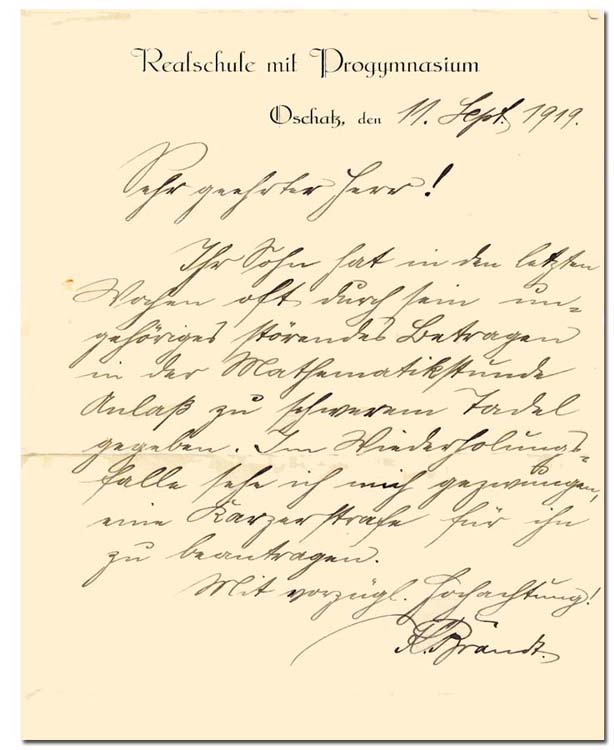 Realschule mit Progymnasium
Oschatz, den 11. Sept. 1919.
Sehr geehrter Herr!
Ihr Sohn hat in den letzten
Wochen oft durch sein un-
gehöriges störendes Betragen
in der Mathematikstunde
Anlaß zu schwerem Tadel
gegeben. Im Wiederholungs-
falle sehe ich mich gezwungen,
eine Karzerstrafe für ihn
zu beantragen.
Mit vorzügl. Hochachtung!
K. Brandt.